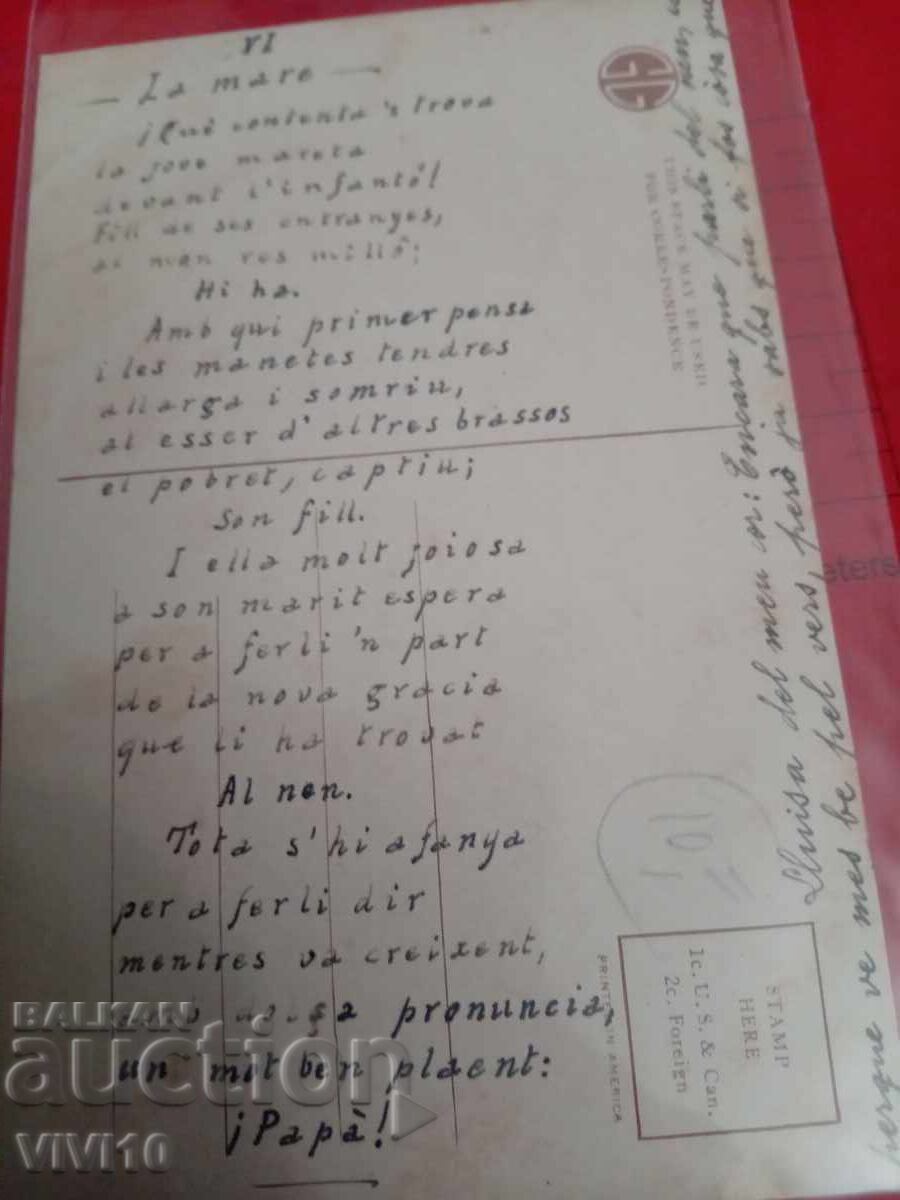 VI
— La mare —
¡Què contenta 's trova
la jove mareta
devant l'infantó!
Fill de ses entranyes,
al món res milló;
Hi ha.
Amb qui primer pensa
i les manetes tendres
allarga i somriu,
al esser d'altres brassos
el pobret, captiu;
Son fill.
I ella molt joiosa
a son marit espera
per a ferli 'n part
de la nova gracia
que li ha trovat
Al nen.
Tota s'hi afanya
per a ferli dir
mentres va creixent,
pronuncia,
un mot ben plaent:
¡Papà!
THIS SPACE MAY BE USED
FOR CORRESPONDENCE
Lluisa del meu cor: Encara que parli del nen,
perque ve mes be pel vers, però ja sabs que si fos cosa que
STAMP
HERE
1c. U. S. & Can.
2c. Foreign
PRINTED IN AMERICA
10
eters
BALKAN
auction
VIVI10